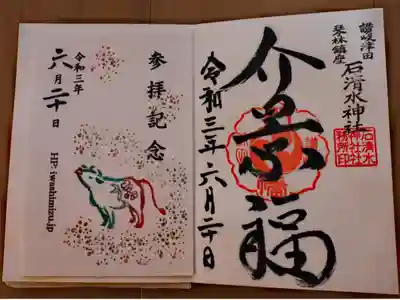 讃岐津田
琴林鎮座
石清水神社
介景福
令和三年六月二十日
石清水
神社社
務所印
参拝記念
令和三年
六月二十日
HP: iwashimizu.jp